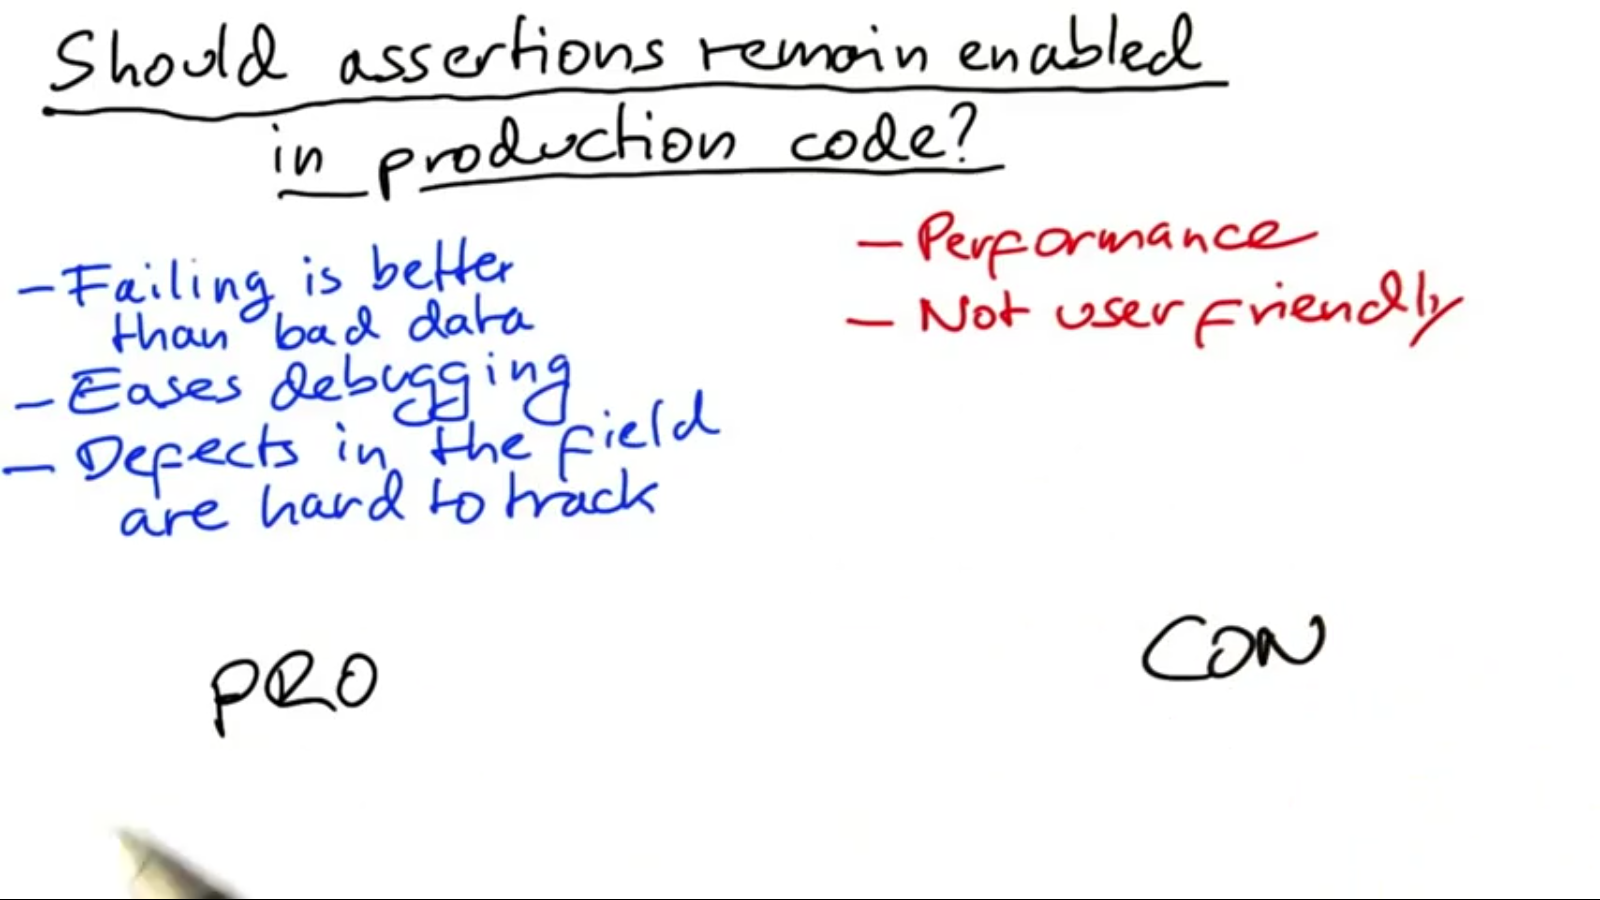 Should assertions remain enabled
in production code?
- Failing is better
than bad data
- Eases debugging
- Defects in the field
are hard to track
- Performance
- Not user friendly
PRO
CON